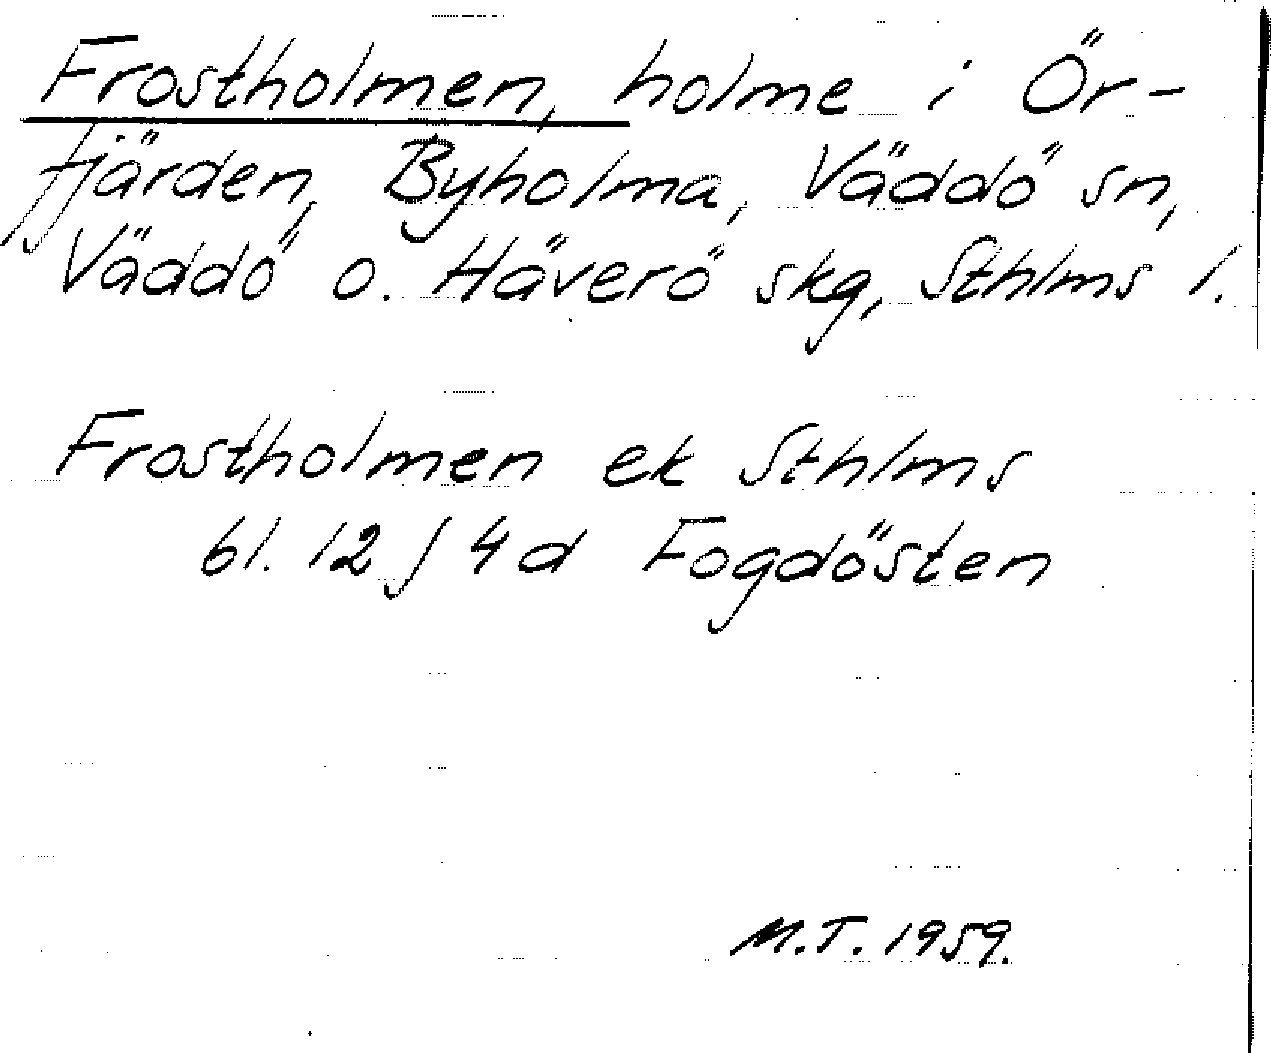 Frostholmen, holme i Ör-
fjärden, Byholma, Väddö sn,
Väddö o. Häverö skg, Sthlms l.
Frostholmen ek Sthlms
bl. 12 J 4d Fogdösten
M.T. 1959.